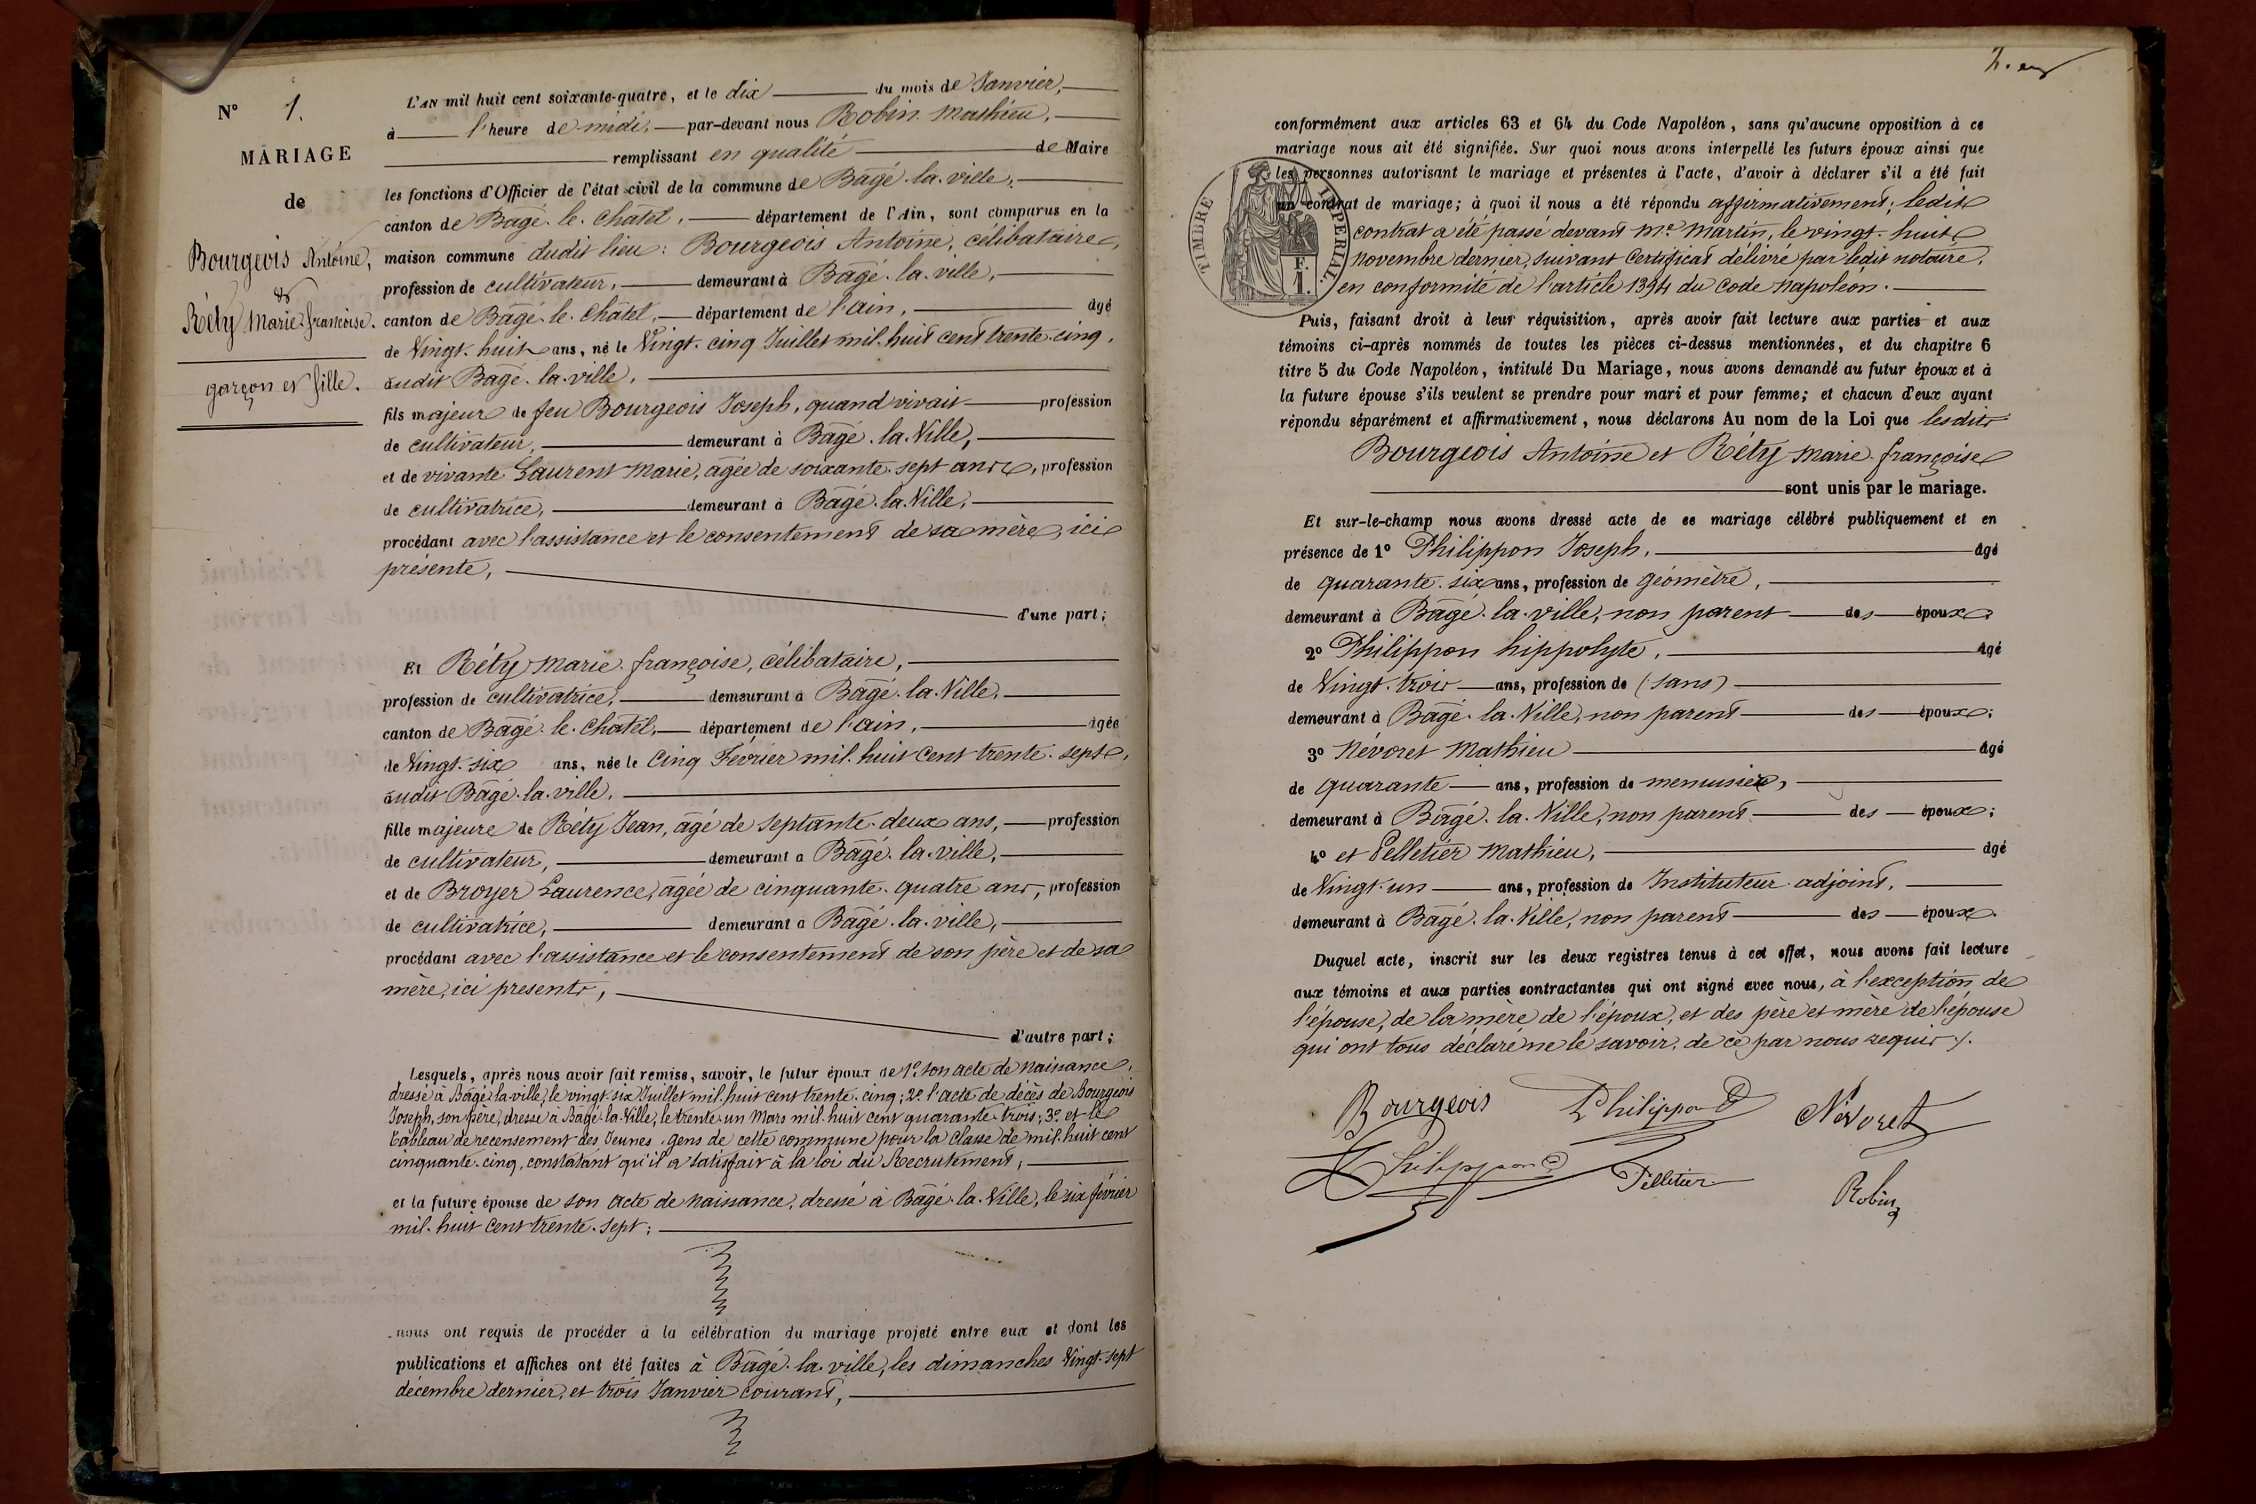 N° 1.
MARIAGE
de
Bourgeois Antoine,
&
Réty Marie françoise.
garçon et fille.
L'AN mil huit cent soixante-quatre, et le dix du mois de Janvier,
à l'heure de midi, par-devant nous Robin Mathieu,
remplissant en qualité de Maire
les fonctions d'Officier de l'état civil de la commune de Bâgé-la-ville,
canton de Bâgé-le-Châtel, département de l'Ain, sont comparus en la
maison commune dudit lieu : Bourgeois Antoine, célibataire,
profession de cultivateur, demeurant à Bâgé-la-ville,
canton de Bâgé-le-Châtel, département de l'ain, âgé
de Vingt-huit ans, né le Vingt-cinq Juillet mil-huit cent trente-cinq,
audit Bâgé-la-ville,
fils majeur de feu Bourgeois Joseph, quand vivait profession
de cultivateur, demeurant à Bâgé-la-Ville,
et de vivante Laurent Marie, âgée de soixante-sept ans, profession
de cultivatrice, demeurant à Bâgé-la-Ville,
procédant avec l'assistance et le consentement de sa mère, ici
présente,
d'une part ;
Et Réty Marie-françoise, célibataire,
profession de cultivatrice, demeurant à Bâgé-la-Ville,
canton de Bâgé-le-Châtel, département de l'ain, âgée
de Vingt-six ans, née le Cinq Février mil-huit cent trente-sept,
audit Bâgé-la-ville,
fille majeure de Réty Jean, âgé de septante-deux ans, profession
de cultivateur, demeurant à Bâgé-la-ville,
et de Broyer Laurence, âgée de cinquante-quatre ans, profession
de cultivatrice, demeurant à Bâgé-la-ville,
procédant avec l'assistance et le consentement de son père et de sa
mère, ici présents,
d'autre part ;
Lesquels, après nous avoir fait remise, savoir, le futur époux de 1° son acte de naissance,
dressé à Bâgé-la-ville, le vingt-six Juillet mil-huit cent trente-cinq ; 2° l'acte de décès de Bourgeois
Joseph, son père, dressé à Bâgé-la-Ville, le trente-un Mars mil-huit cent quarante-trois ; 3° et le
tableau de recensement des Jeunes-gens de cette commune pour la classe de mil-huit cent
cinquante-cinq, constatant qu'il a satisfait à la loi du Recrutement,
et la future épouse de son acte de naissance, dressé à Bâgé-la-Ville, le six février
mil-huit cent trente-sept ;
nous ont requis de procéder à la célébration du mariage projeté entre eux et dont les
publications et affiches ont été faites à Bâgé-la-ville, les dimanches Vingt-sept
décembre dernier, et trois Janvier courant,
conformément aux articles 63 et 64 du Code Napoléon, sans qu'aucune opposition à ce
mariage nous ait été signifiée. Sur quoi nous avons interpellé les futurs époux ainsi que
les personnes autorisant le mariage et présentes à l'acte, d'avoir à déclarer s'il a été fait
un contrat de mariage ; à quoi il nous a été répondu affirmativement ; ledit
contrat a été passé devant Me Martin, le vingt-huit
novembre dernier, suivant Certificat délivré par ledit notaire,
en conformité de l'article 1394 du Code Napoléon.
TIMBRE IMPERIAL
1 F.
Puis, faisant droit à leur réquisition, après avoir fait lecture aux parties et aux
témoins ci-après nommés de toutes les pièces ci-dessus mentionnées, et du chapitre 6
titre 5 du Code Napoléon, intitulé Du Mariage, nous avons demandé au futur époux et à
la future épouse s'ils veulent se prendre pour mari et pour femme ; et chacun d'eux ayant
répondu séparément et affirmativement, nous déclarons Au nom de la Loi que lesdits
Bourgeois Antoine et Réty Marie-françoise
sont unis par le mariage.
Et sur-le-champ nous avons dressé acte de ce mariage célébré publiquement et en
présence de 1° Philippon Joseph, âgé
de quarante-six ans, profession de géomètre,
demeurant à Bâgé-la-ville, non parent des époux
2° Philippon hippolyte, âgé
de Vingt-trois ans, profession de (sans)
demeurant à Bâgé-la-Ville, non parent des époux ;
3° Névoret Mathieu âgé
de quarante ans, profession de menuisier,
demeurant à Bâgé-la-Ville, non parent des époux ;
4° et Pelletier Mathieu, âgé
de Vingt-un ans, profession de Instituteur-adjoint,
demeurant à Bâgé-la-Ville, non parent des époux.
Duquel acte, inscrit sur les deux registres tenus à cet effet, nous avons fait lecture
aux témoins et aux parties contractantes qui ont signé avec nous, à l'exception de
l'épouse, de la mère de l'époux, et des père et mère de l'épouse
qui ont tous déclaré ne le savoir, de ce par nous requis ./.
Bourgeois Philippon Névoret
Philippon Pelletier Robin